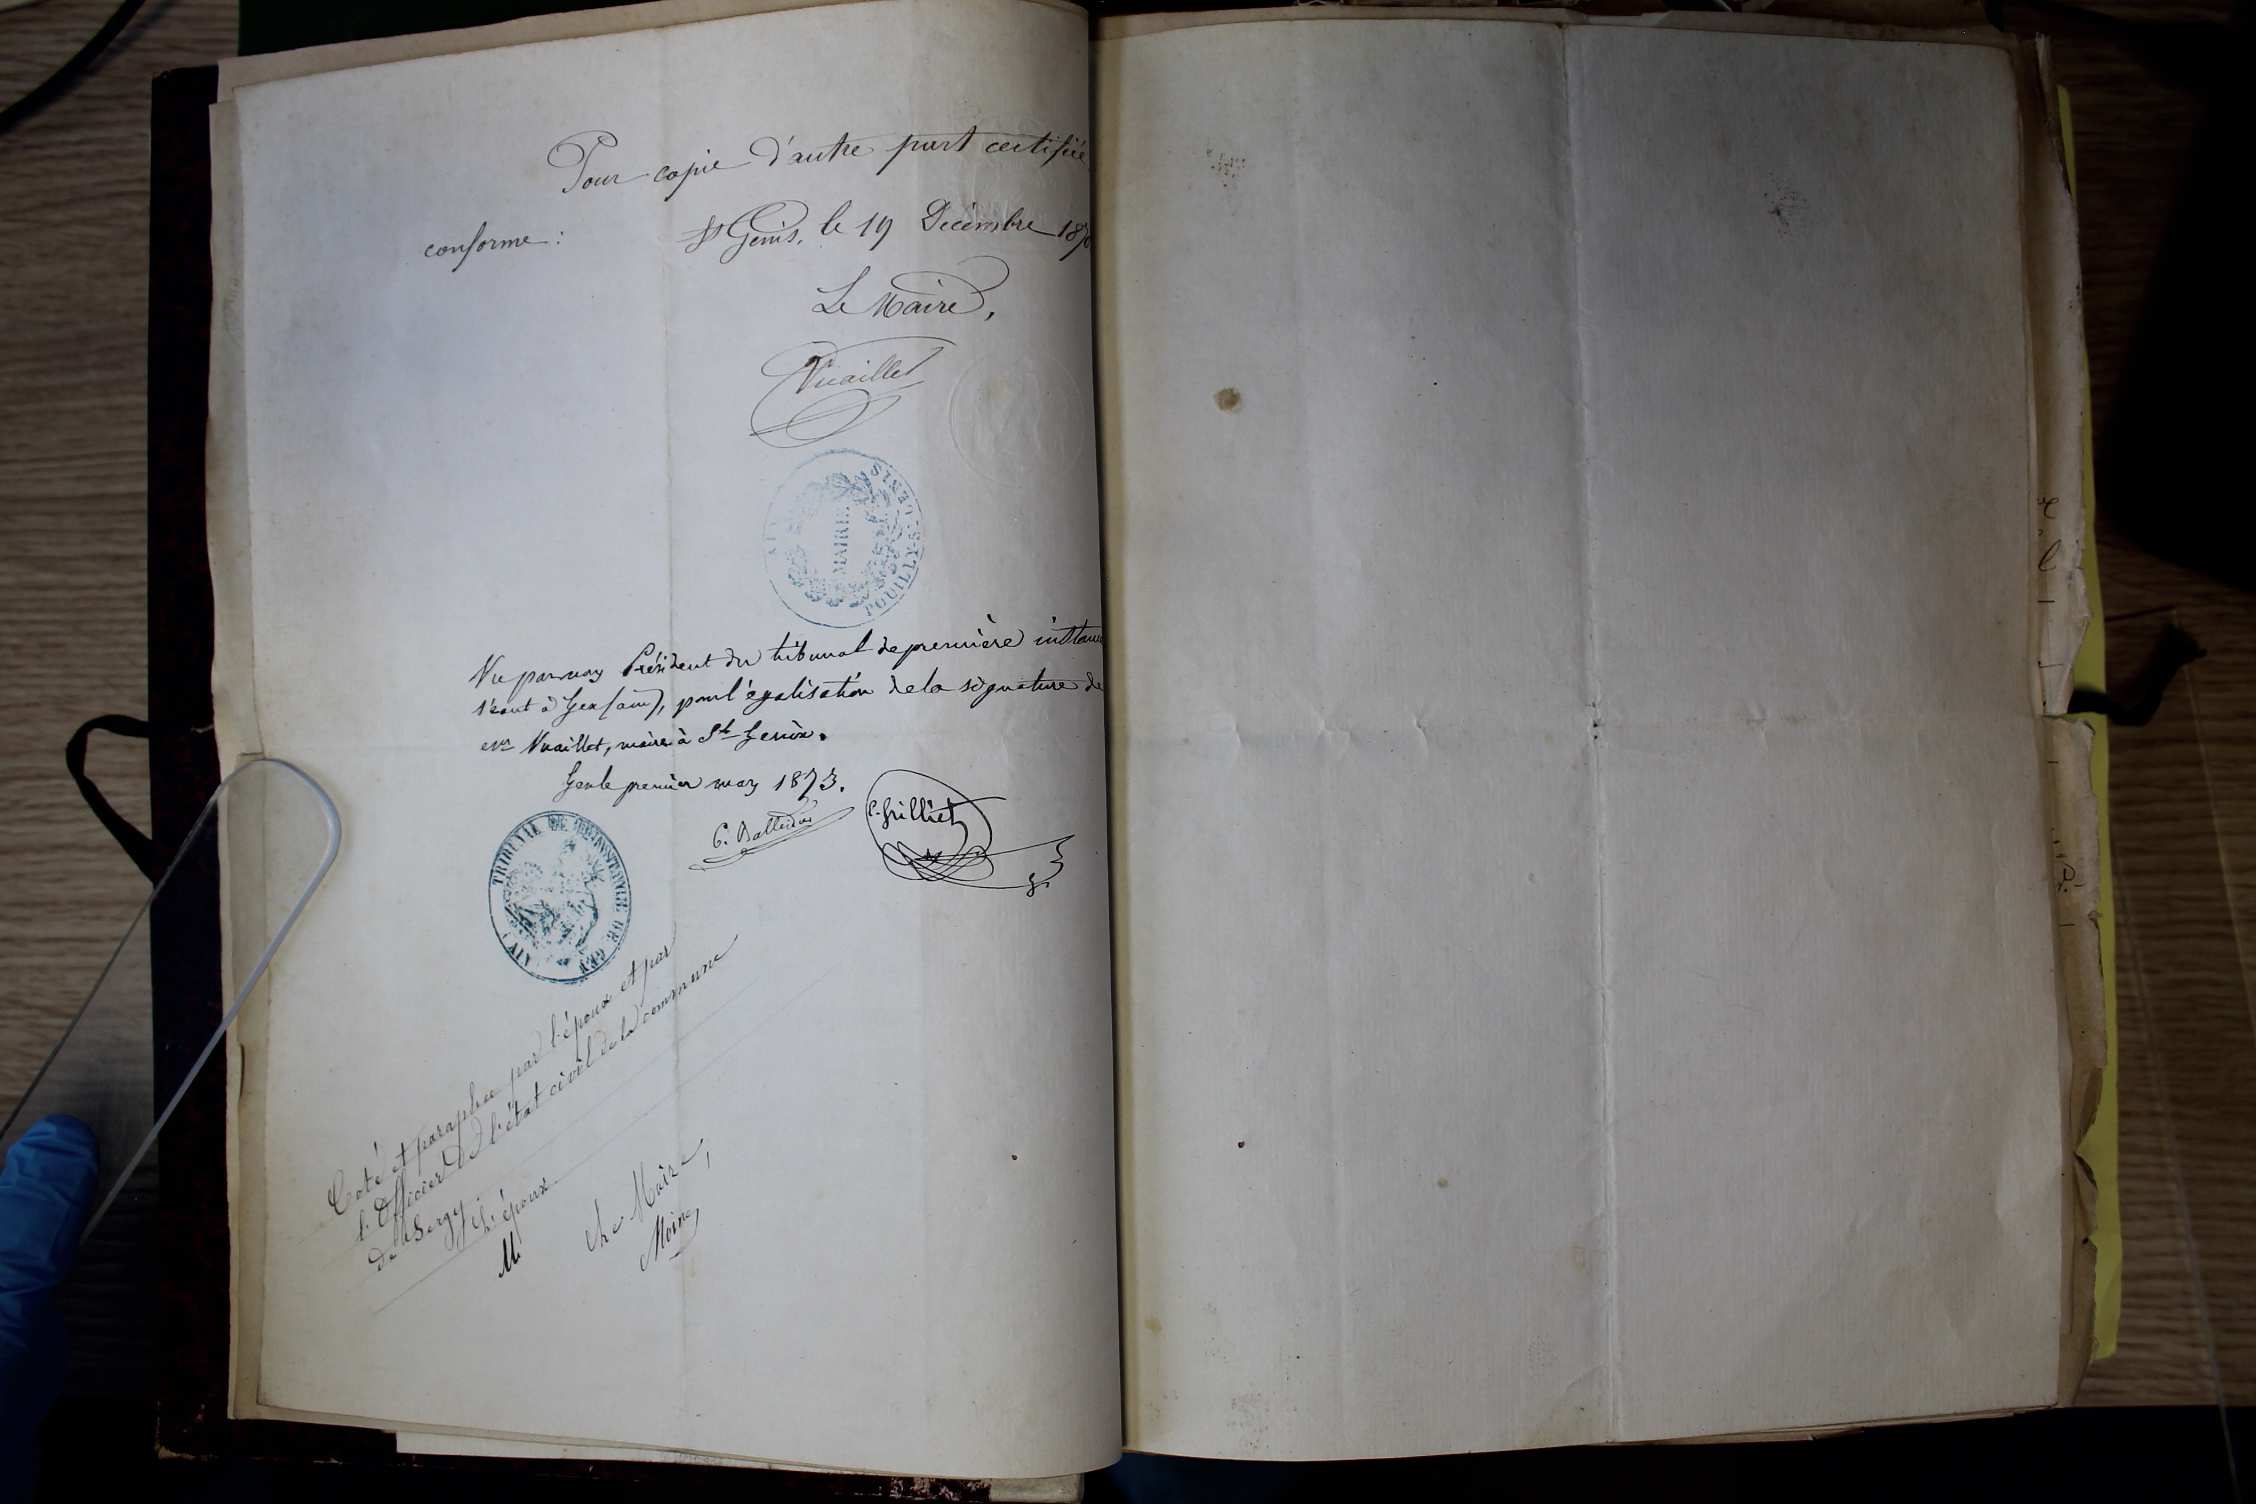 Pour copie d'autre part certifiée
conforme : St Genis, le 19 Décembre 187
Le Maire,
Vuaillet
MAIRIE
POUILLY-St GENIS
Vu par nous Président du tribunal de première instance
séant à Gex (ain), pour légalisation de la signature de
Mr Vuaillet, maire à St Genix.
Gex le premier mars 1873.
C. Grilliet
TRIBUNAL DE 1RE INSTANCE DE GEX
(AIN)
Coté et paraphé par l'époux et par
l'Officier de l'état civil de la commune
de Sergy
L'époux Le Maire,
M Moine